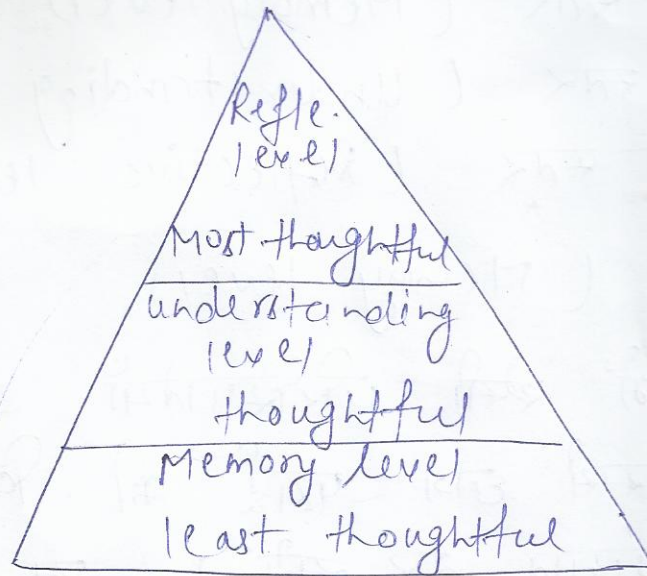 Refle.
level
Most thoughtful
understanding
level
thoughtful
Memory level
least thoughtful